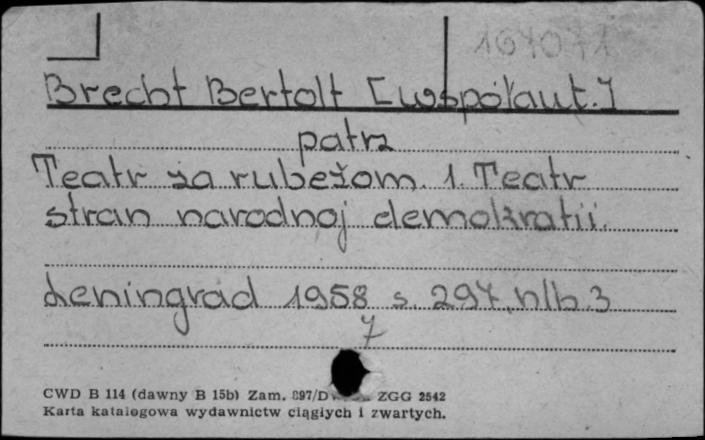 167071
Brecht Bertolt [współaut.]
patrz
Teatr za rubežom. 1. Teatr
stran narodnoj demokratii.
Leningrad 1958 s. 297, nlb. 3
7
CWD B 114 (dawny B 15b) Zam. 897/D ZGG 2542
Karta katalogowa wydawnictw ciągłych i zwartych.